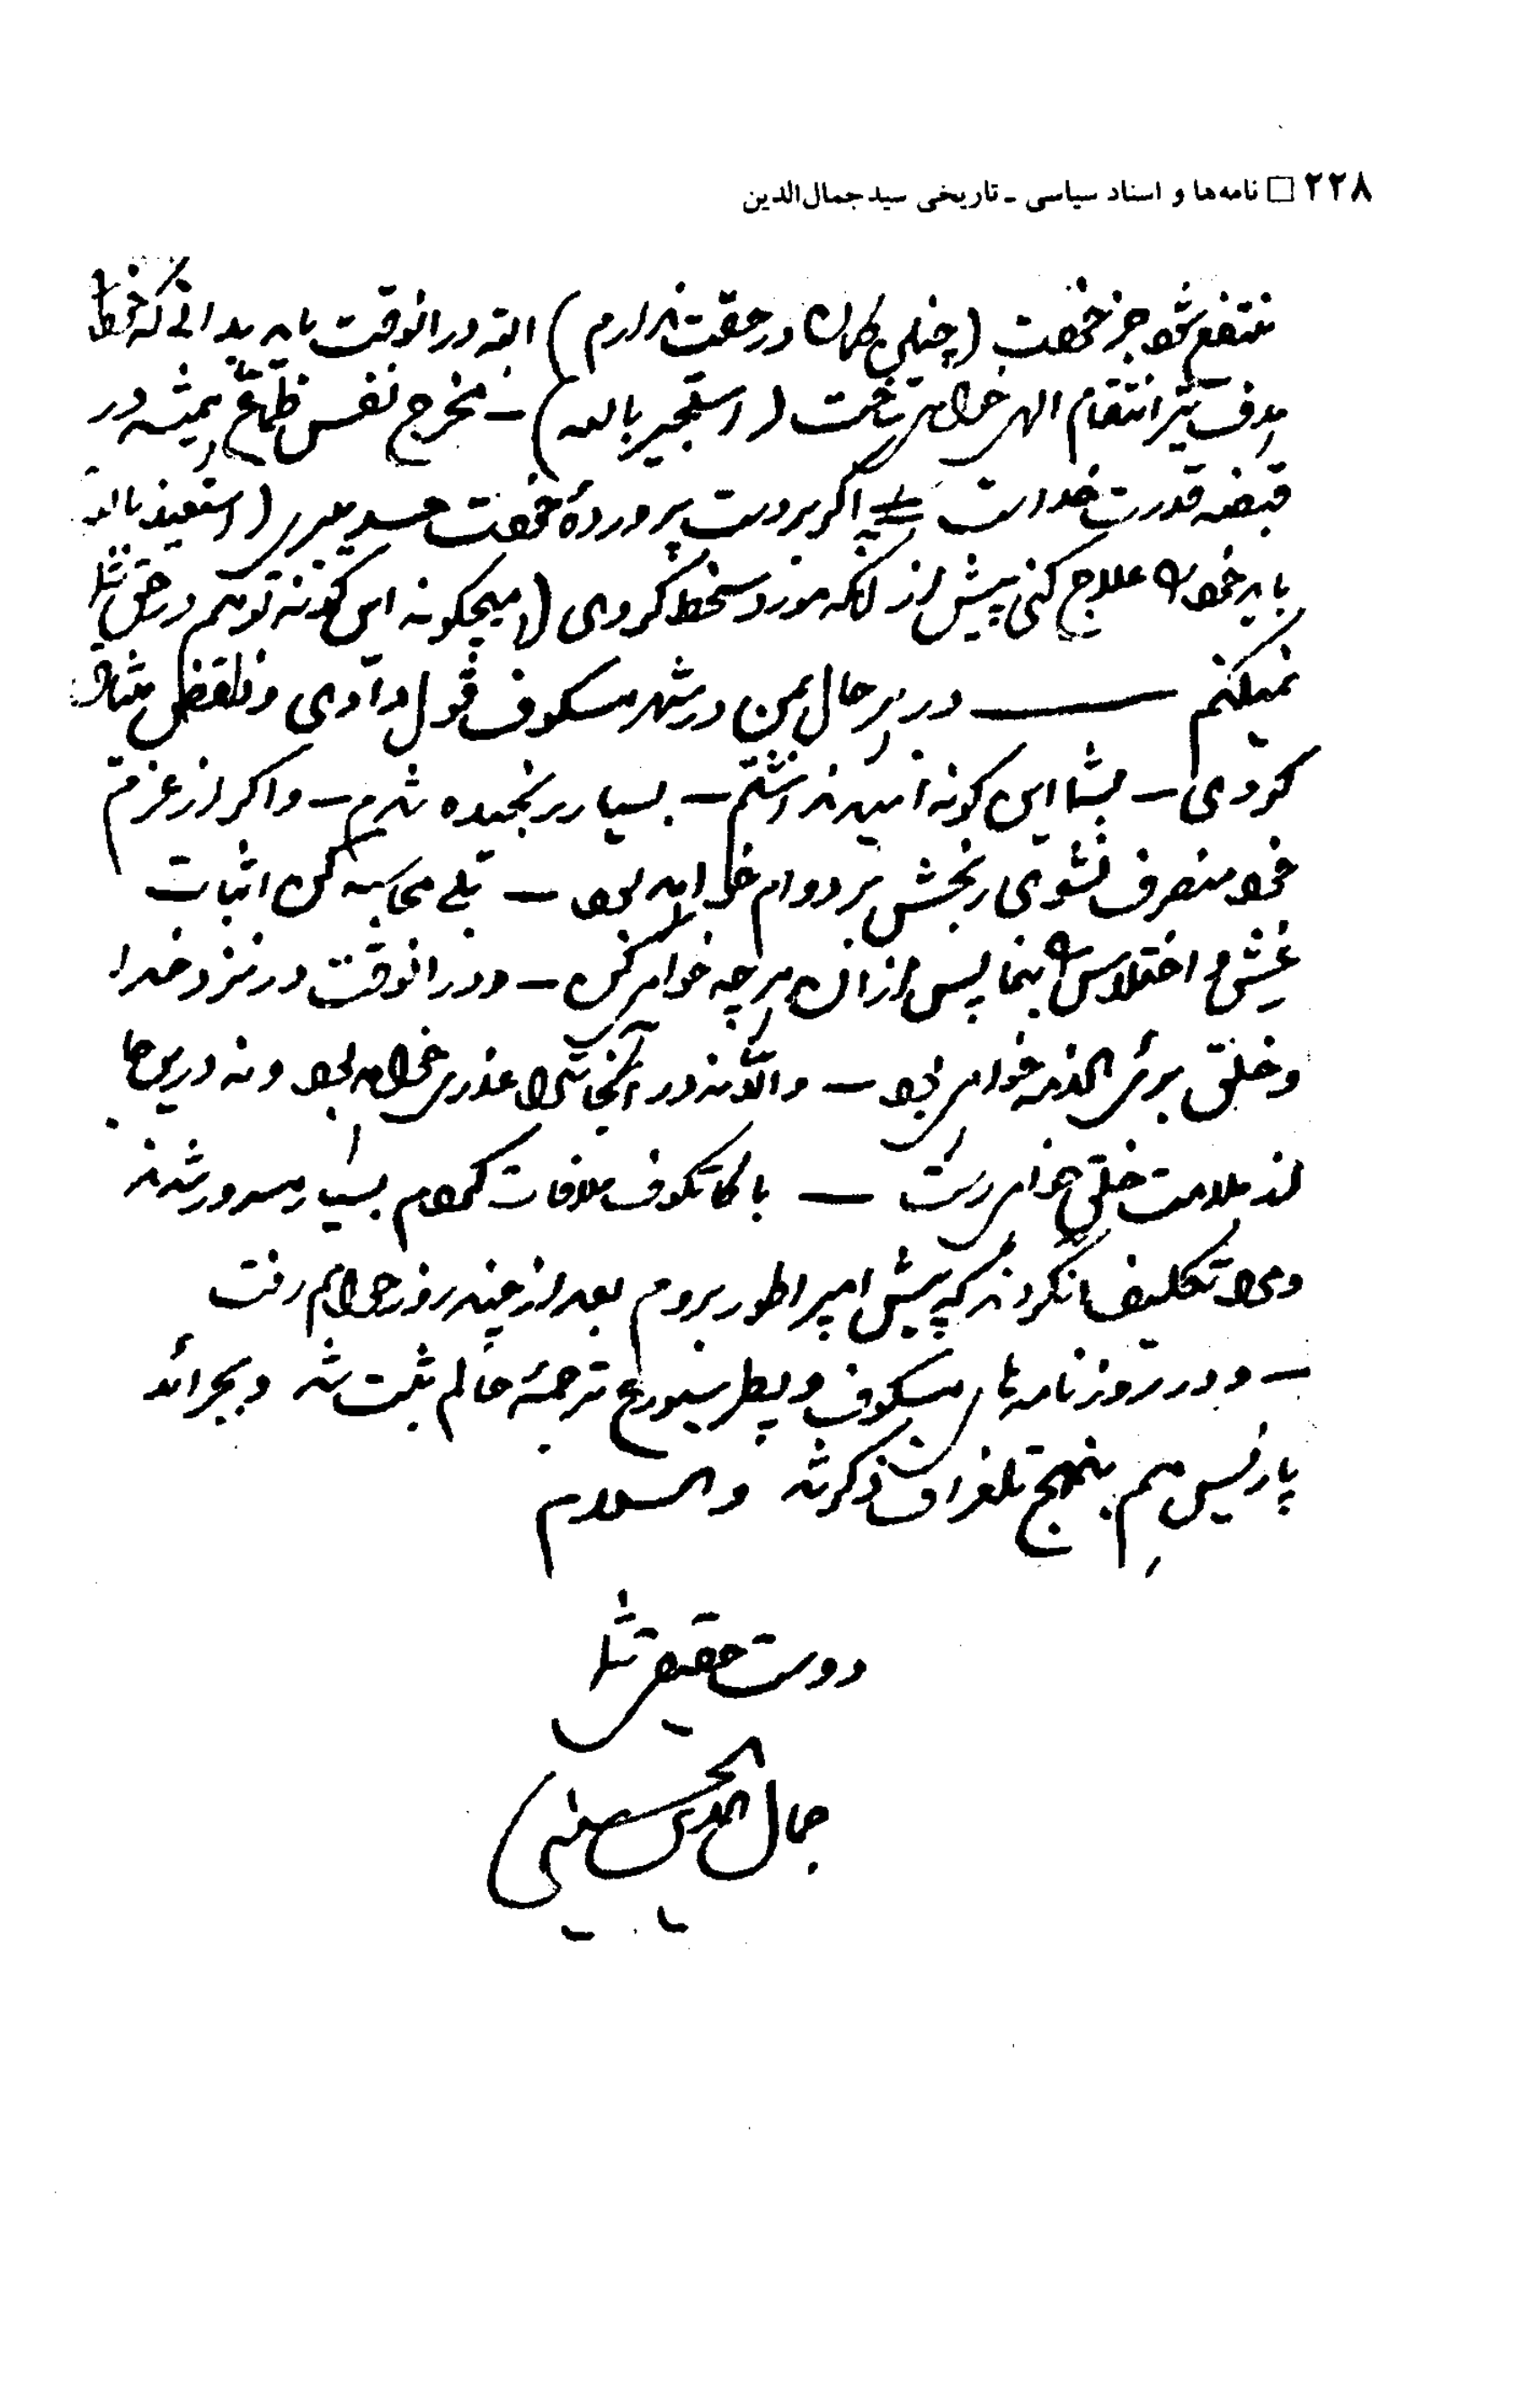 ۲۲۸ □ نامه‌ها و اسناد سیاسی ـ تاریخی سید جمال‌الدین
منتفع شود جز خودت (چنین گمان در حقت ندارم) البته درانوقت باید بدانی که خود را
هدف تیر انتقام الهی خواهی ساخت (استجیر بالله) ــ مخرج نفس طماع همیشه در
قبضه قدرت خداست ــ اگر بر دست پرورده خودت حسد میبری (استعیذ بالله
باید خود را علاج کنی پیش از آنکه مورد سخط گردی (هیچگونه این گونه توهم در حق شما
نمیکنم ــــ در هر حال بمن در شهر مسکوف قول دادی و نقض میثاق
کردی ــ بشما این گونه امید نداشتم ــ بسیار رنجیده شدم ــ و اگر از عزم
خود منصرف نشوی رنجش بر دوام خواهد بود ــ بلی محاسبه کن اثبات
غش و اختلاس را بنما پس از ان هر چه خواهی کن ــ و درانوقت در نزد خدا
و خلق برئ الذمه خواهی بود ــ و الا نه در آنجا ترا عذری خواهد بود و نه درین جا
از ملامت خلق خواهی رست ــ با کاتکوف ملاقات کردم بسیار مسرور شدند
و مرا تکلیف کردند که پیش امپراطور بروم بعد از چند روز خواهم رفت
ــ و در روزنامه‌های مسکوف و پطرسبورغ ترجمهٔ حالم ثبت شد و بجرائد
پاریس هم بنهج تلغراف ذکر شد والسلام
دوست حقیقی شما
جمال الدین الحسینی